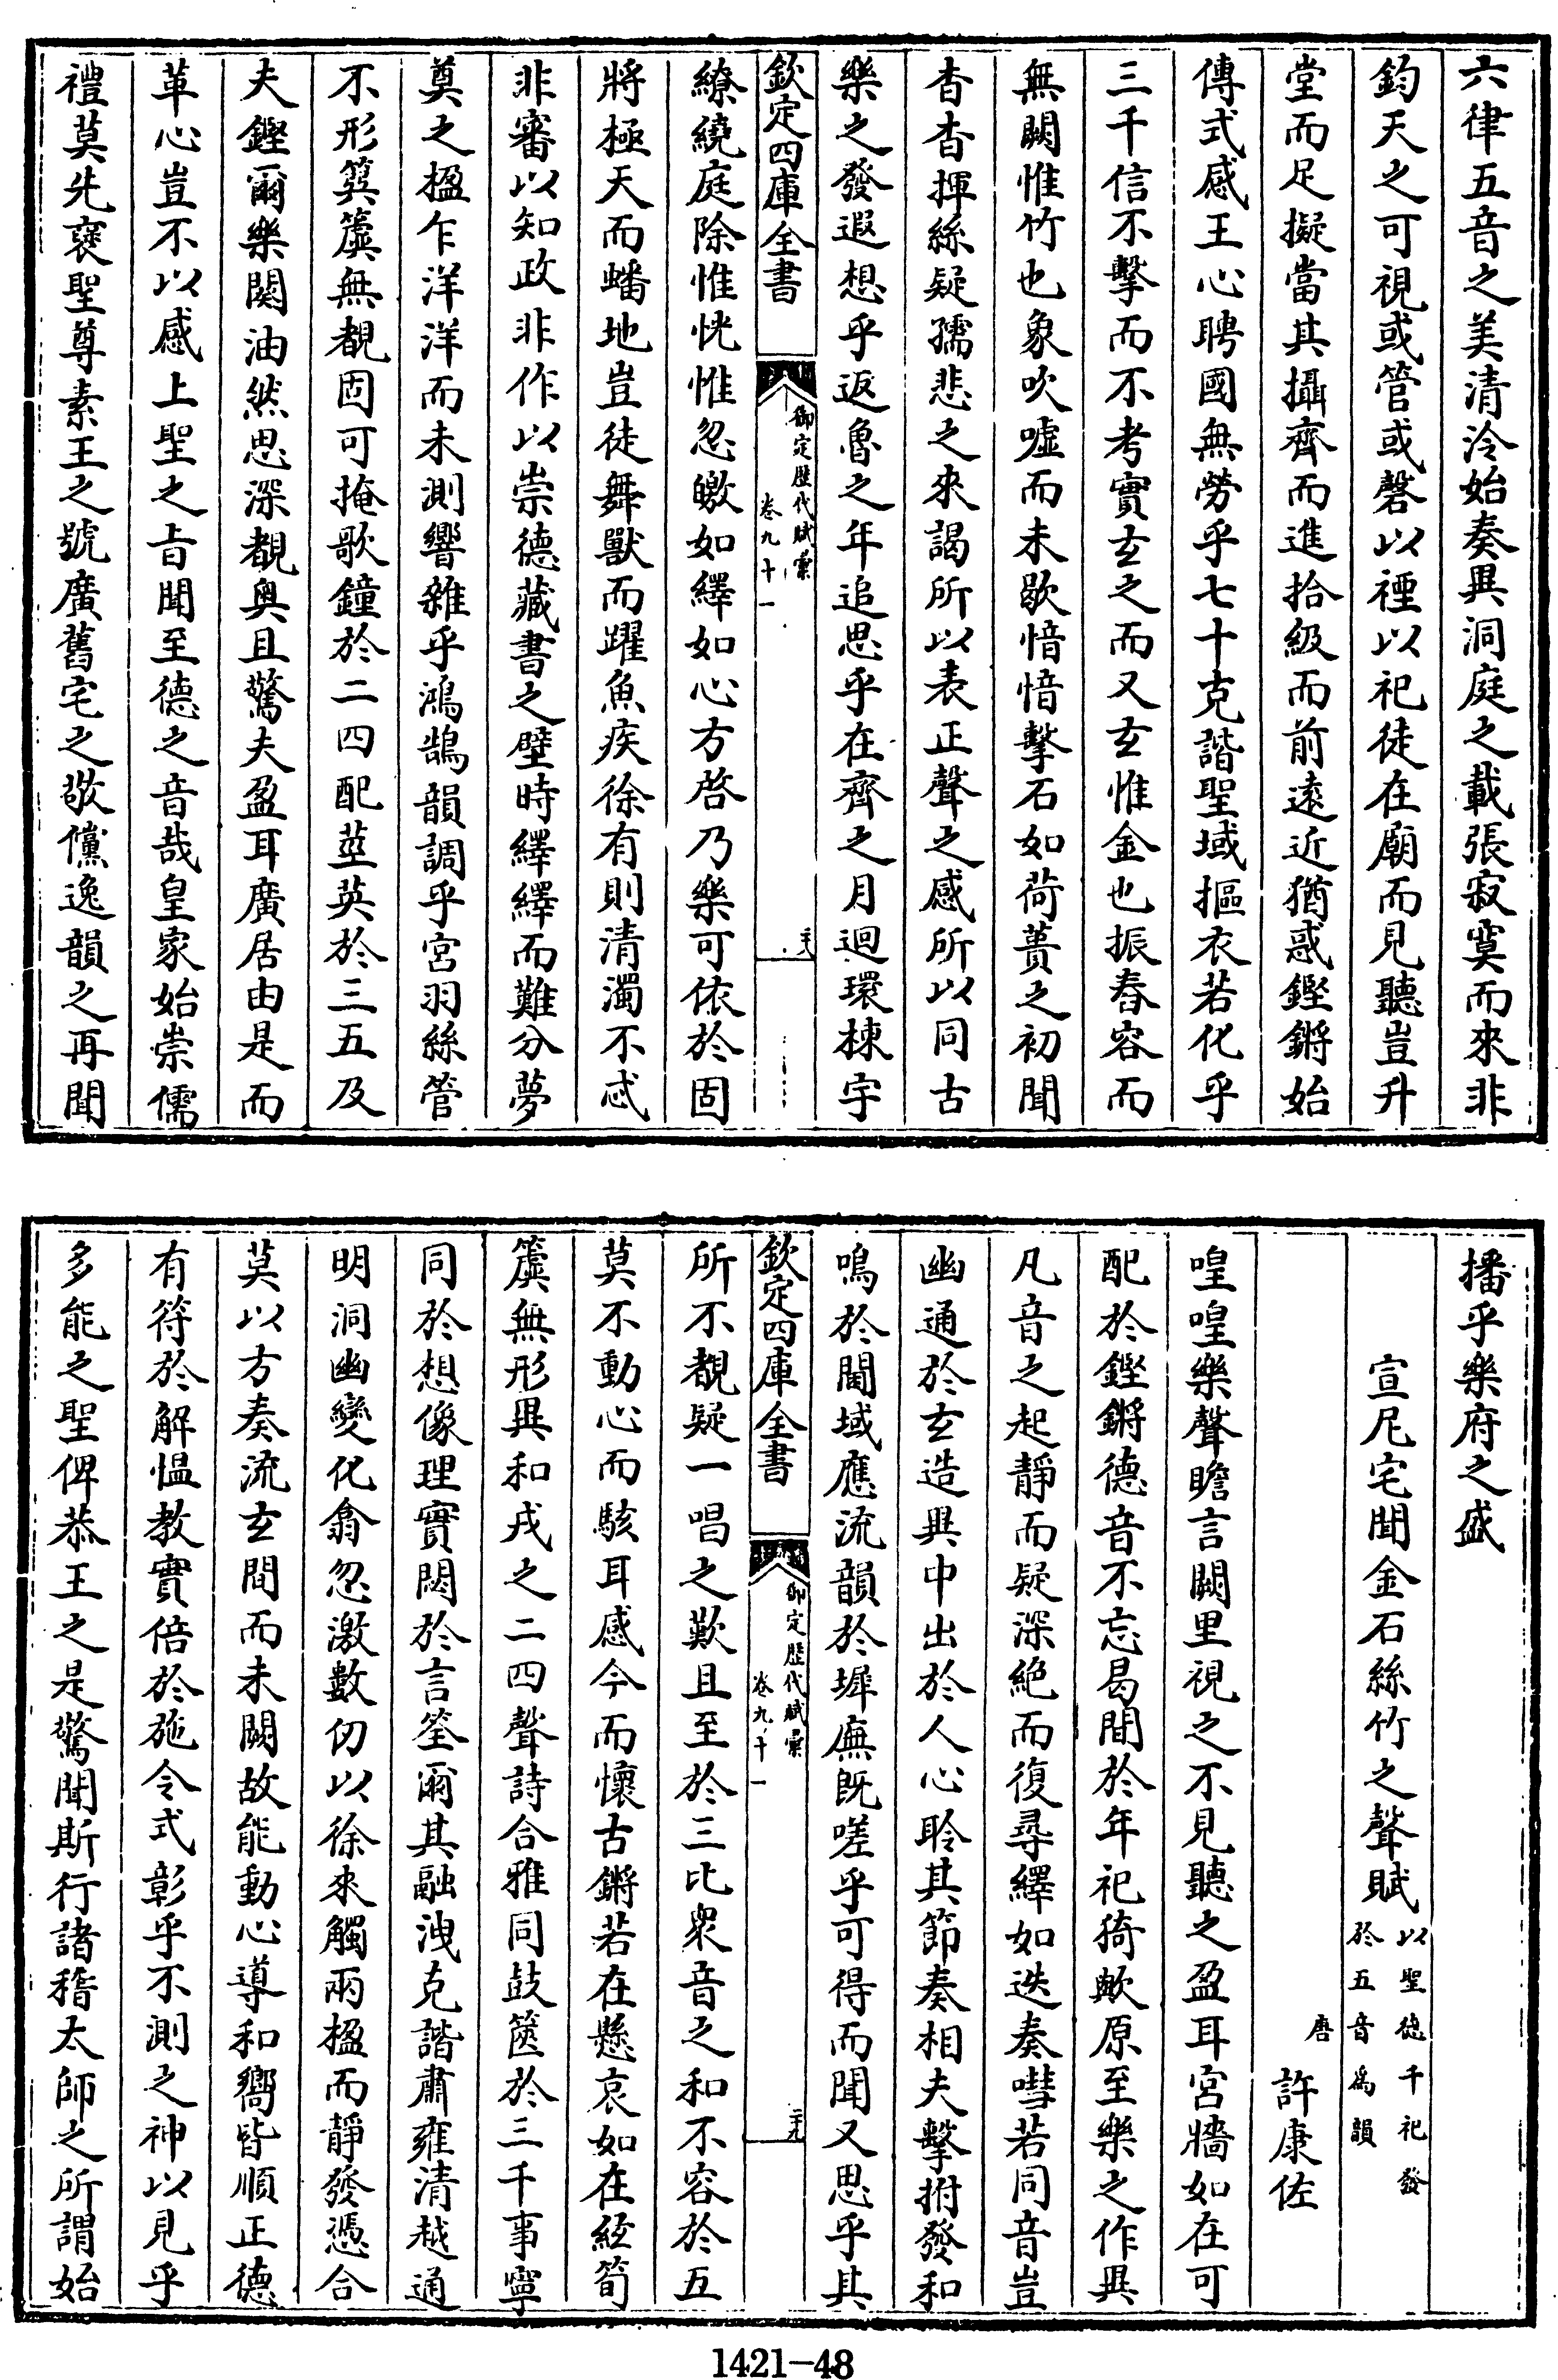 六律五音之美清泠始奏異洞庭之載張寂寞而來非
鈞天之可視或管或磬以禋以祀徒在廟而見聽豈升
堂而足擬當其攝齊而進拾級而前遠近猶惑鏗鏘始
傳式感王心聘國無勞乎七十克諧聖域摳衣若化乎
三千信不擊而不考實玄之而又玄惟金也振舂容而
無闕惟竹也象吹嘘而未歇愔愔擊石如荷蕢之初聞
杳杳揮絲疑孺悲之來謁所以表正聲之感所以同古
樂之發遐想乎返魯之年追思乎在齊之月迴環棟宇
欽定四庫全書
御定歴代賦彙
卷九十一
三六
繚繞庭除惟恍惟忽皦如繹如心方啓乃樂可依於固
將極天而蟠地豈徒舞獸而躍魚疾徐有則清濁不忒
非審以知政非作以崇德藏書之壁時繹繹而難分夢
奠之楹乍洋洋而未測響雜乎鴻鵠韻調乎宮羽絲管
不形簨簴無覩固可掩歌鐘於二四配莖英於三五及
夫鏗爾樂闋油然思深覩奥且驚夫盈耳廣居由是而
革心豈不以感上聖之㫖聞至德之音哉皇家始崇儒
禮莫先褒聖尊素王之號廣舊宅之敬儻逸韻之再聞
播乎樂府之盛
宣尼宅聞金石絲竹之聲賦
以聖德千祀發
於五音為韻
唐
許康佐
喤喤樂聲瞻言闕里視之不見聽之盈耳宮牆如在可
配於鏗鏘德音不忘曷間於年祀猗歟原至樂之作異
凡音之起靜而疑深絶而復尋繹如迭奏嘒若同音豈
幽通於玄造異中出於人心聆其節奏相夫擊拊發和
鳴於閫域應流韻於墀廡既嗟乎可得而聞又思乎其
欽定四庫全書
御定歴代賦彙
卷九十一
三九
所不覩疑一唱之歎且至於三比衆音之和不容於五
莫不動心而駭耳感今而懷古鏘若在懸哀如在絃筍
簴無形異和戎之二四聲詩合雅同鼓篋於三千事寧
同於想像理實闕於言筌爾其融洩克諧肅雍清越通
明洞幽變化翕忽激數仞以徐來觸兩楹而靜發憑合
莫以方奏流玄間而未闕故能動心導和嚮皆順正德
有符於解愠教實倍於施令式彰乎不測之神以見乎
多能之聖俾恭王之是驚聞斯行諸稽太師之所謂始
1421-48